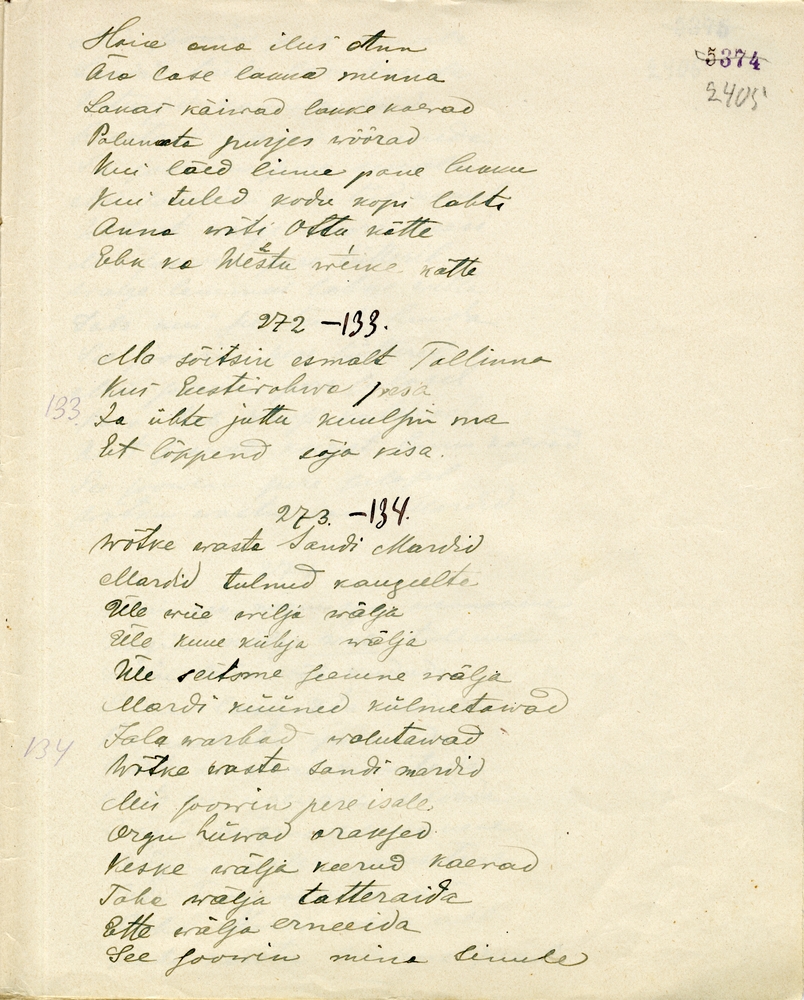 5374
2405
Hoia oma ilus õnn
Ära lase launa minna
Laual käiwad laukekaerad
Palumata purjes wöörad
Kui läed linna pane lukku
Kui tuled kodu kopi lahti
Anna wõti Ottu kätte
Ehk ka Westu weike kätte
272 –133.
Ma sõitsin esmalt Tallinna
Kus Eestirahwa pesa
133
Ja ühte juttu kuulsin ma
Et lõppend sõja kisa.
273. –134.
Wõtke wasta Sandi Mardid
Mardid tulnud kaugeelte
Üle wiie wilja wälja
Üle kuue kühja wälja
Üle seitsme seeme wälja
Mardi küüned külmetawad
134
Jala warbad walutawad
Wõtke wasta sandi mardid
Mis soowin pere isale.
Orgu hüwad orased
Keske wälja keerud kaerad
Taha wälja tatteraida
Ette wälja erneeida
See soowin mina sinule